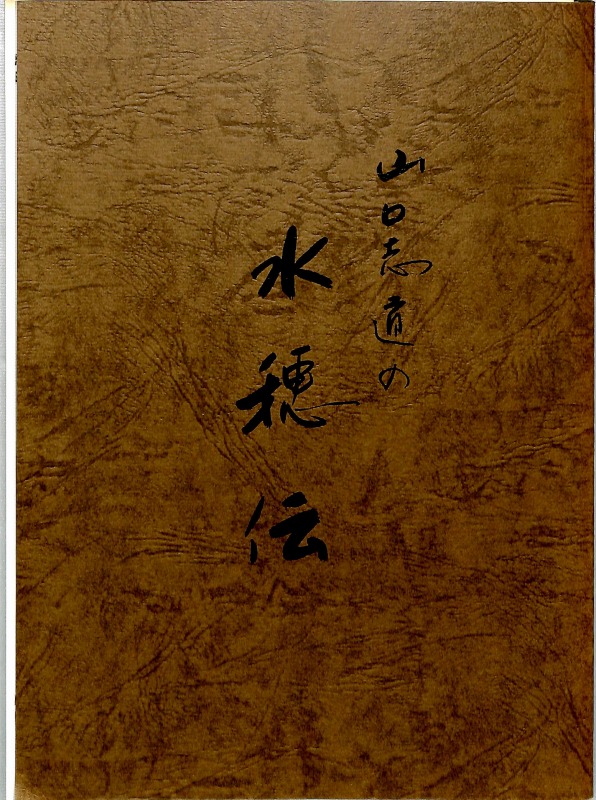 山口志道の
水穂伝